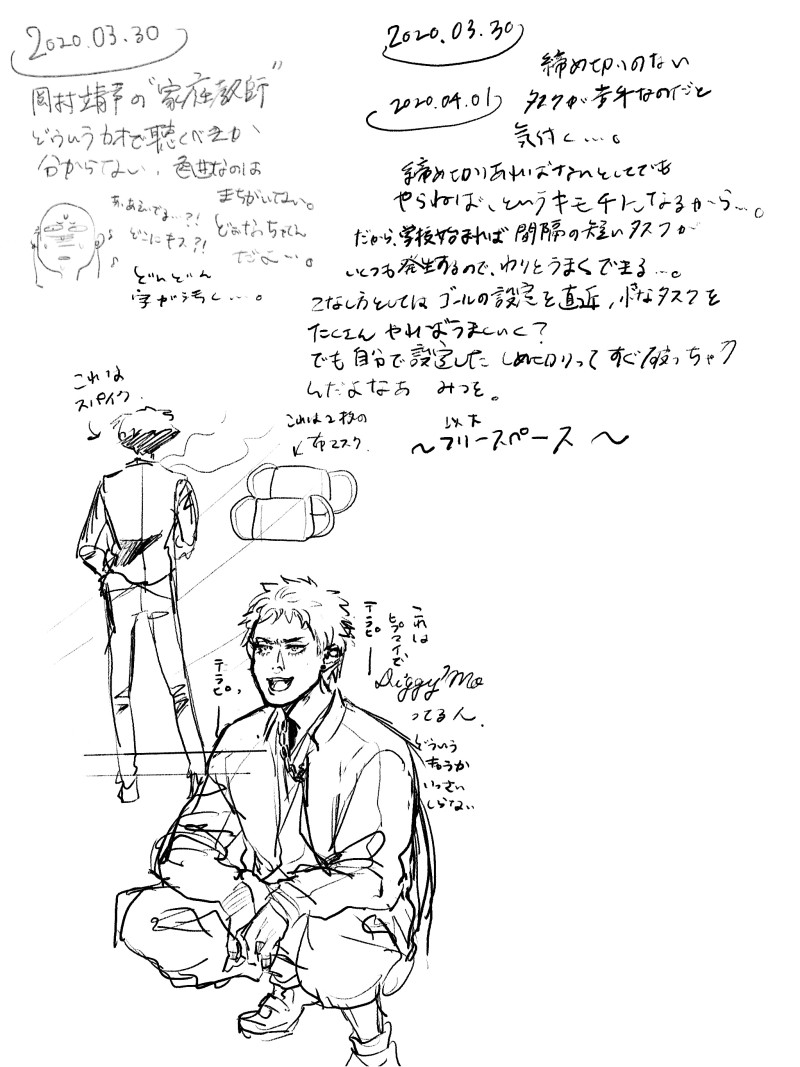 2020.03.30
岡村靖幸の"家庭教師"
どういうカオで聴くべきか
分からない、名曲なのは
まちがいない。
どぉなっちゃってん
だよ…。
どこにキス?!
どんどん
字が汚く…。
2020.03.30
2020.04.01
締め切りのない
タスクが苦手なのだと
気付く…。
締め切りあればなんとしてでも
やらねば、というキモチになるから…。
だから、学校始まれば間隔の短いタスクが
いくつも発生するので、わりとうまくできる…。
こなし方としてはゴールの設定を直近、小さなタスクを
たくさんやればうまくいく?
でも自分で設定したしめ切りってすぐ破っちゃう
んだよなあ みつを。
以下
〜フリースペース〜
これは
スパイク.
これは2枚の
布マスク.
これは
ヒプマイで
Diggy'Mo
ってる人.
どういう
きょうか
いっさい
しらない
テラピ。
テラピ。